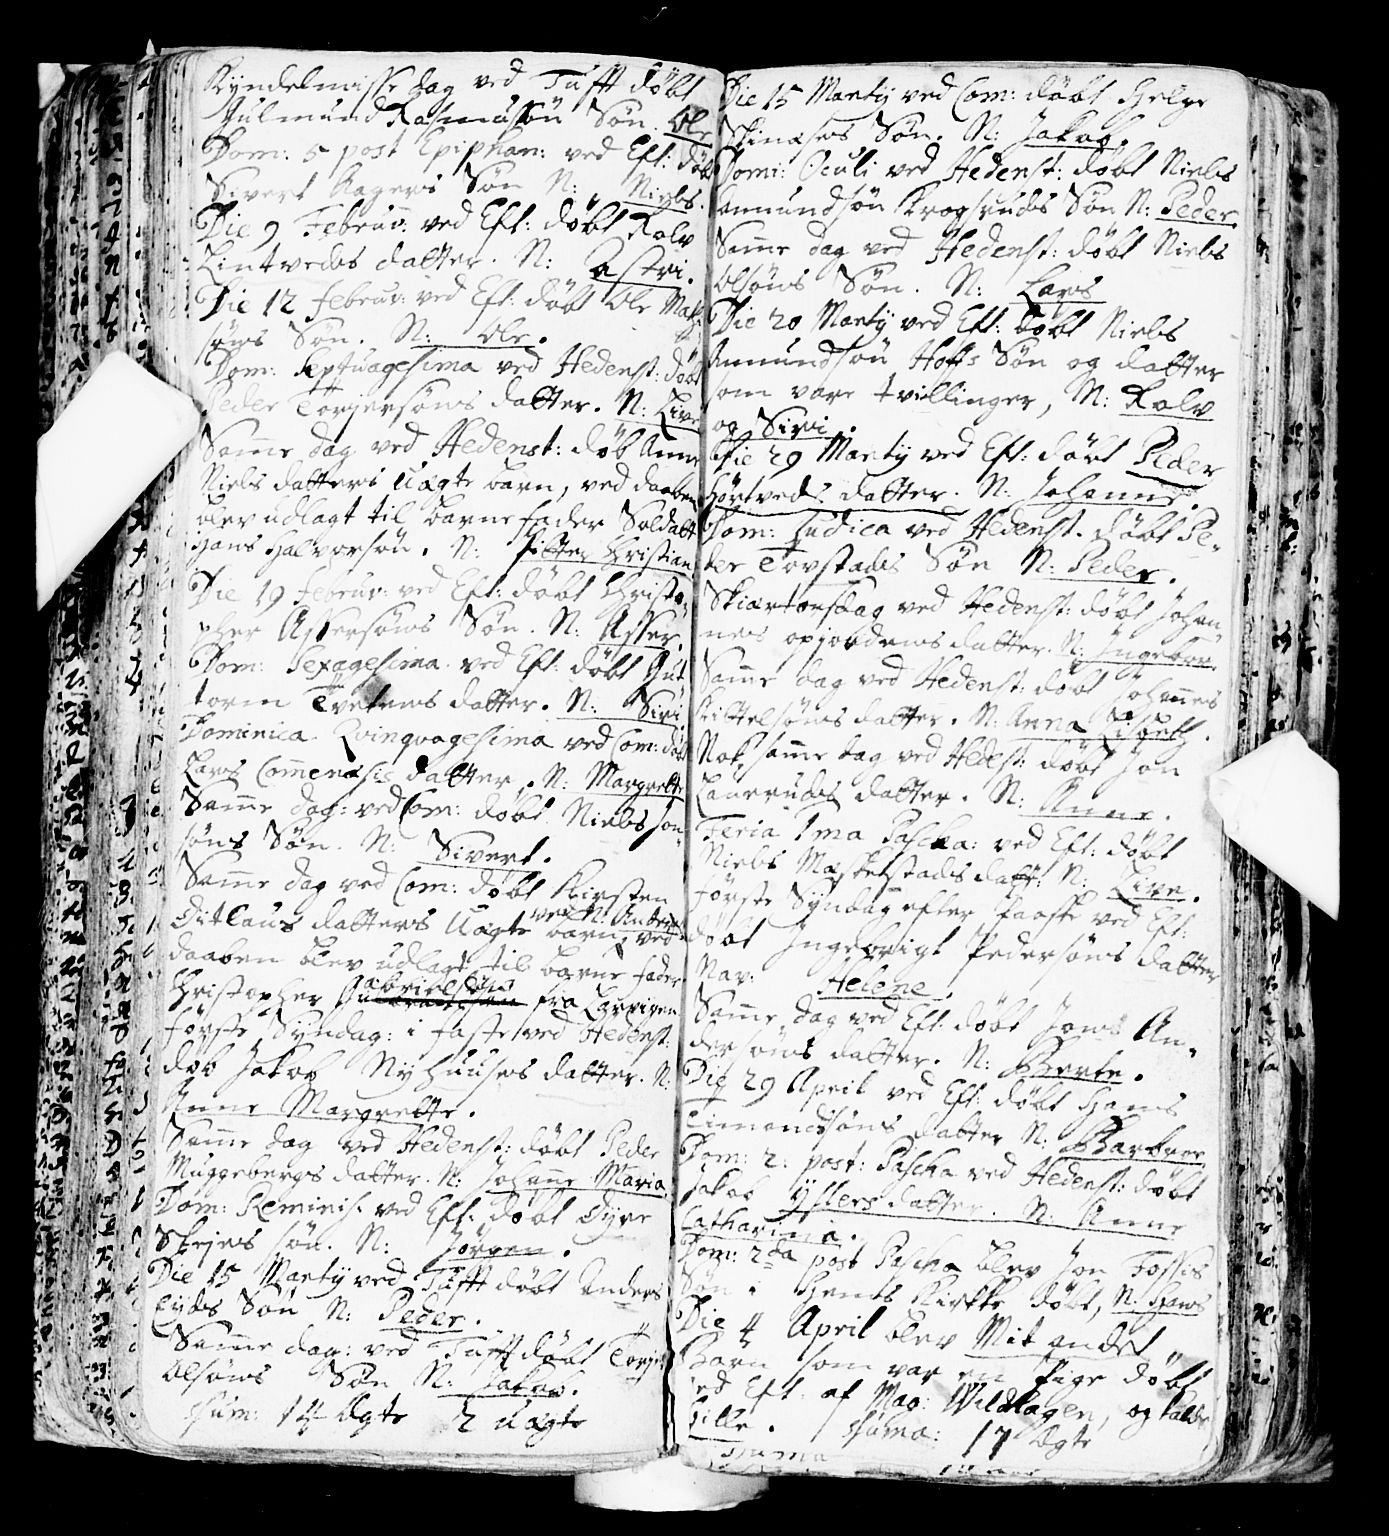 Kyndelmisse dag ved Tufft döbt
Gulmund Rasmusön Sön. Ole
Dom: 5 post Epiphan: ved Eft: döbt
Sivert Aagers Sön N: Niels.
Die 9 Februar: ved Eft: döbt Rolv
Lintvedts datter. N: Astri.
Die 12 februar: ved Eft: döbt Ole Mats
söns Sön. N: Ole.
Dom: Septuagesima ved Hedenst: döbt
Peder Torjersöns datter. N: Live
Same dag ved Hedenst: döb Anne
Niels datters Uægte barn, ved daaben
blev udlagt til barnefader Soldatt
Hans Halvorsön. N: Pitter Christian
Die 19 februar: ved Eft: döbt Christo-
pher Assersöns Sön. N: Asser.
Dom: Sexagesima. ved Eft: döbt Gut
torm Tvetens datter. N: Siri.
Dominica Qvinqvagesima ved Com: döbt
Lars datter. N: Margrette
Same dag: ved Com: döbt Niels Jon-
söns Sön. N: Sivert.
Same dag ved Com: döbt Kirsten
Ditlaus datters Uægte barn, ved N: Anders
daaben blev udlagt til barne fader
Christopher Gabrielsön fra Larvigen
förste Syndag: i faste ved Hedenst:
döb Jakob Nyhuuses datter. N:
Anne Margrette.
Same dag ved Hedenst: döbt Peder
Muggebergs datter. N: Johane Maria.
Dom: Reminis: ved Eft: döbt Gyre
Skrjers sön. N: Jörgen.
Die 15 Marty ved Tufft döbt Anders
Eyds Sön N: Peder.
Same dag: ved Tufft döbt Torje
Olsöns Sön N: Jakob.
Sum: 14 Ægte 2 Uægte
Die 15 Marty ved Com: döbt Helge
Sön. N: Jakob.
Domi: Oculi ved Hedenst: döbt Niels
Amundsön Krogsruds Sön N: Peder
Same dag ved Hedenst: döbt Niels
Olsöns Sön. N: Lars
Die 20 Marty ved Eft: döbt Niels
Amundsön Hoffs Sön og datter
som vare tvillinger, N: Rolv
og Siri.
Die 29 Marty ved Eft: döbt Peder
Hörtveds datter. N: Johanne.
Dom: Judica ved Hedenst. döbt Pe-
der Torstads Sön N: Peder.
Skiærtorsdag ved Hedenst: döbt Johan-
nes opjordens datter. N: Ingebor.
Same dag ved Hedenst: döbt Johanes
Kittelsöns datter. N: Anna Lisbeth.
Nok same dag ved Hedest: döbt Jon
Laueruds datter. N: Anne.
Feria 1ma Pascha: ved Eft: döbt
Niels Mæskelstads datt: N: Live.
förste Syndag efter Paaske ved Eft:
döbt Ingebrigt Pedersöns datter
Nav: Helene.
Same dag ved Eft: döbt Jens An-
dersöns datter. N: Berte.
Die 29 April ved Eft: döbt Hans
Simensöns datter N: Barbroe
Dom: 2: post: Pascha ved Hedenst: döbt
Jakob Yslers datter. N: Anne
Catharina.
Dom: 2da post Pascha blev Jon Fossis
Sön i Hems Kirkke döbt, N. Hans
Die 4 April blev Mit andet
Barn som var en Pige döbt
ved Eft: af Mag: Wildhagen, og kaldet
Lille. Suma: 17 Ægte
Suma